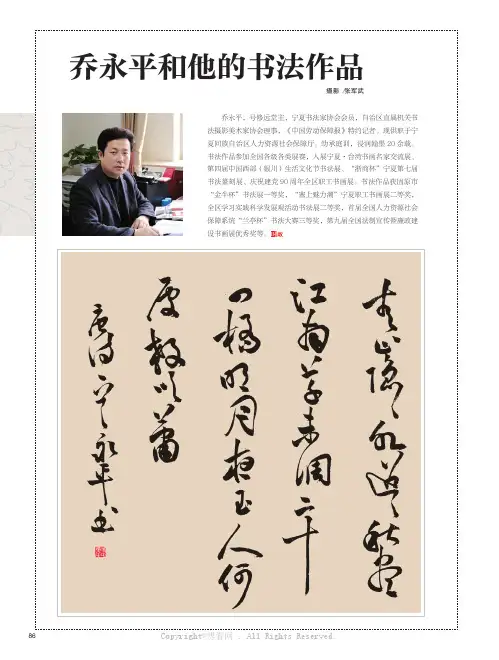 乔永平和他的书法作品
摄影 /张军武
乔永平，号修远堂主，宁夏书法家协会会员，自治区直属机关书
法摄影美术家协会理事，《中国劳动保障报》特约记者。现供职于宁
夏回族自治区人力资源社会保障厅。幼承庭训，浸润翰墨20余载。
书法作品参加全国各级各类展赛，入展宁夏·台湾书画名家交流展、
第四届中国西部（银川）生活文化节书法展、“浙商杯”宁夏第七届
书法篆刻展、庆祝建党90周年全区职工书画展。书法作品获固原市
“金牛杯”书法展一等奖，“塞上魅力潮”宁夏职工书画展二等奖，
全区学习实践科学发展观活动书法展二等奖，首届全国人力资源社会
保障系统“兰亭杯”书法大赛三等奖，第九届全国法制宣传暨廉政建
设书画展优秀奖等。
青山隐隐水迢迢秋尽
江南草未凋二十
四桥明月夜玉人何
处教吹箫
唐诗一首永平书
86
Copyright©博看网 . All Rights Reserved.